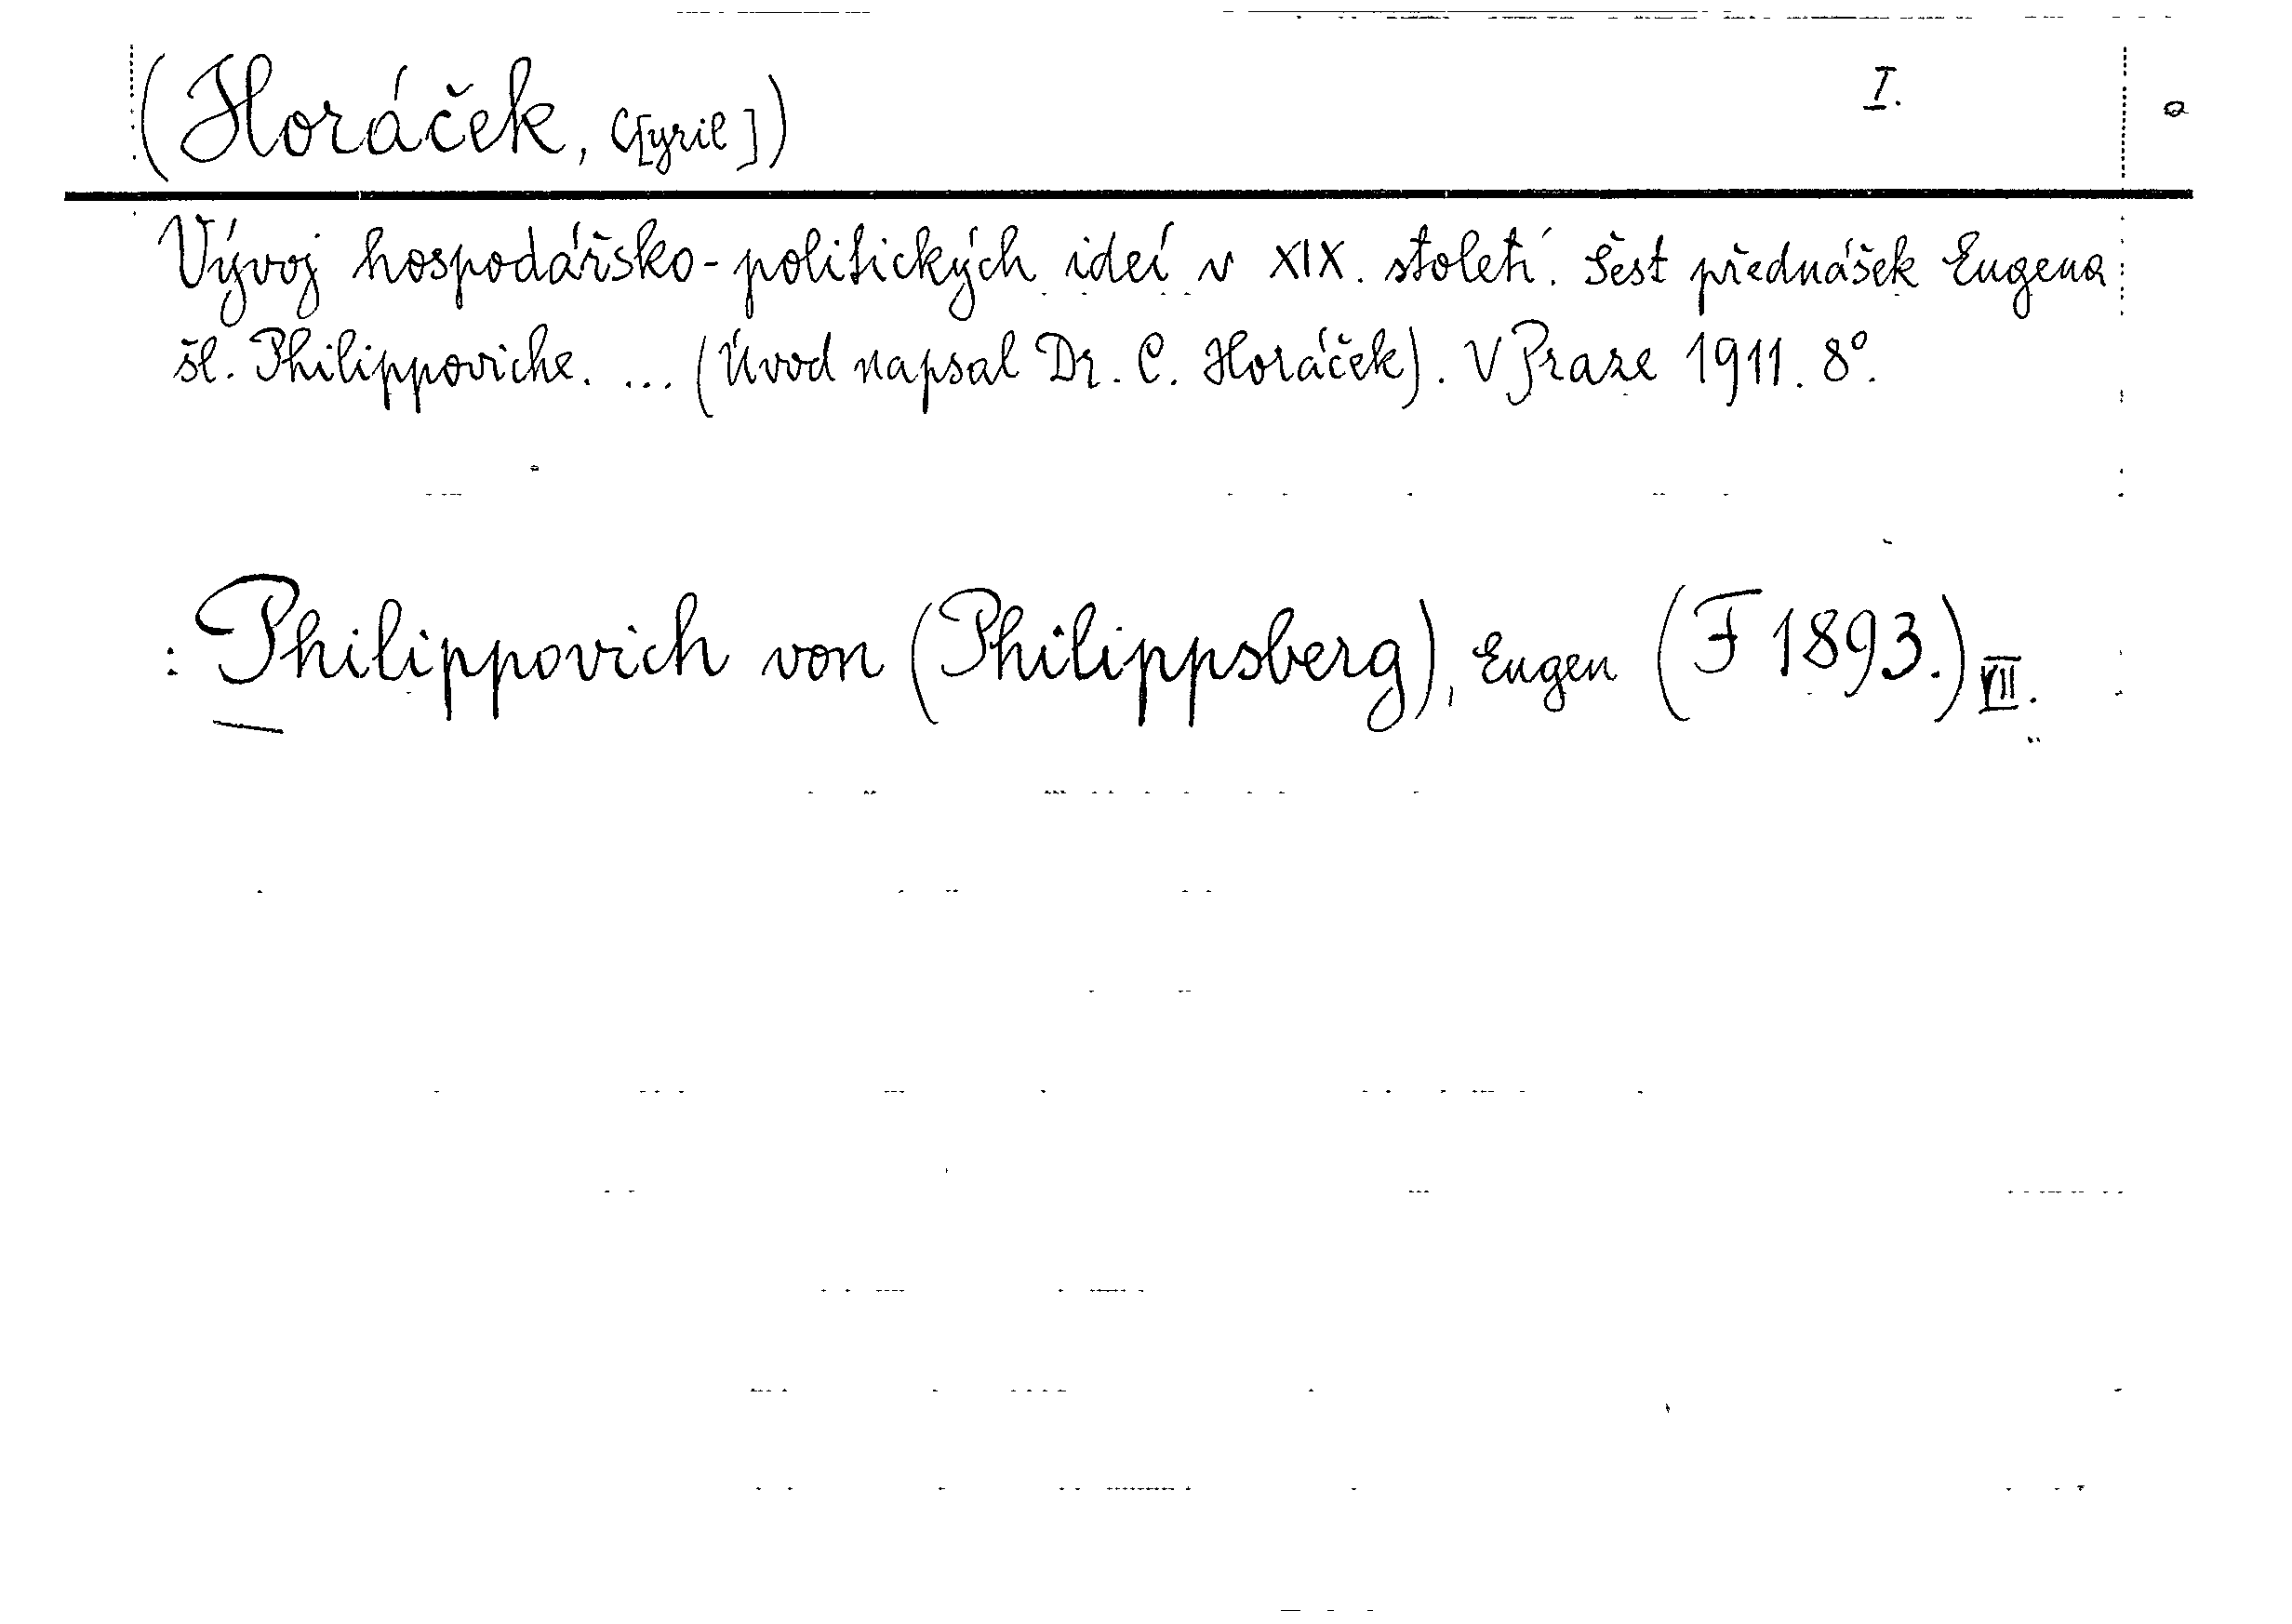 (Horáček, C[yril]) I.
Vývoj hospodářsko-politických ideí v XIX. století. Šest přednášek Eugena
šl. Philippoviche. ... (Úvod napsal Dr. C. Horáček). V Praze 1911. 8°.
: Philippovich von (Philippsberg), Eugen (F 1893.) VII.